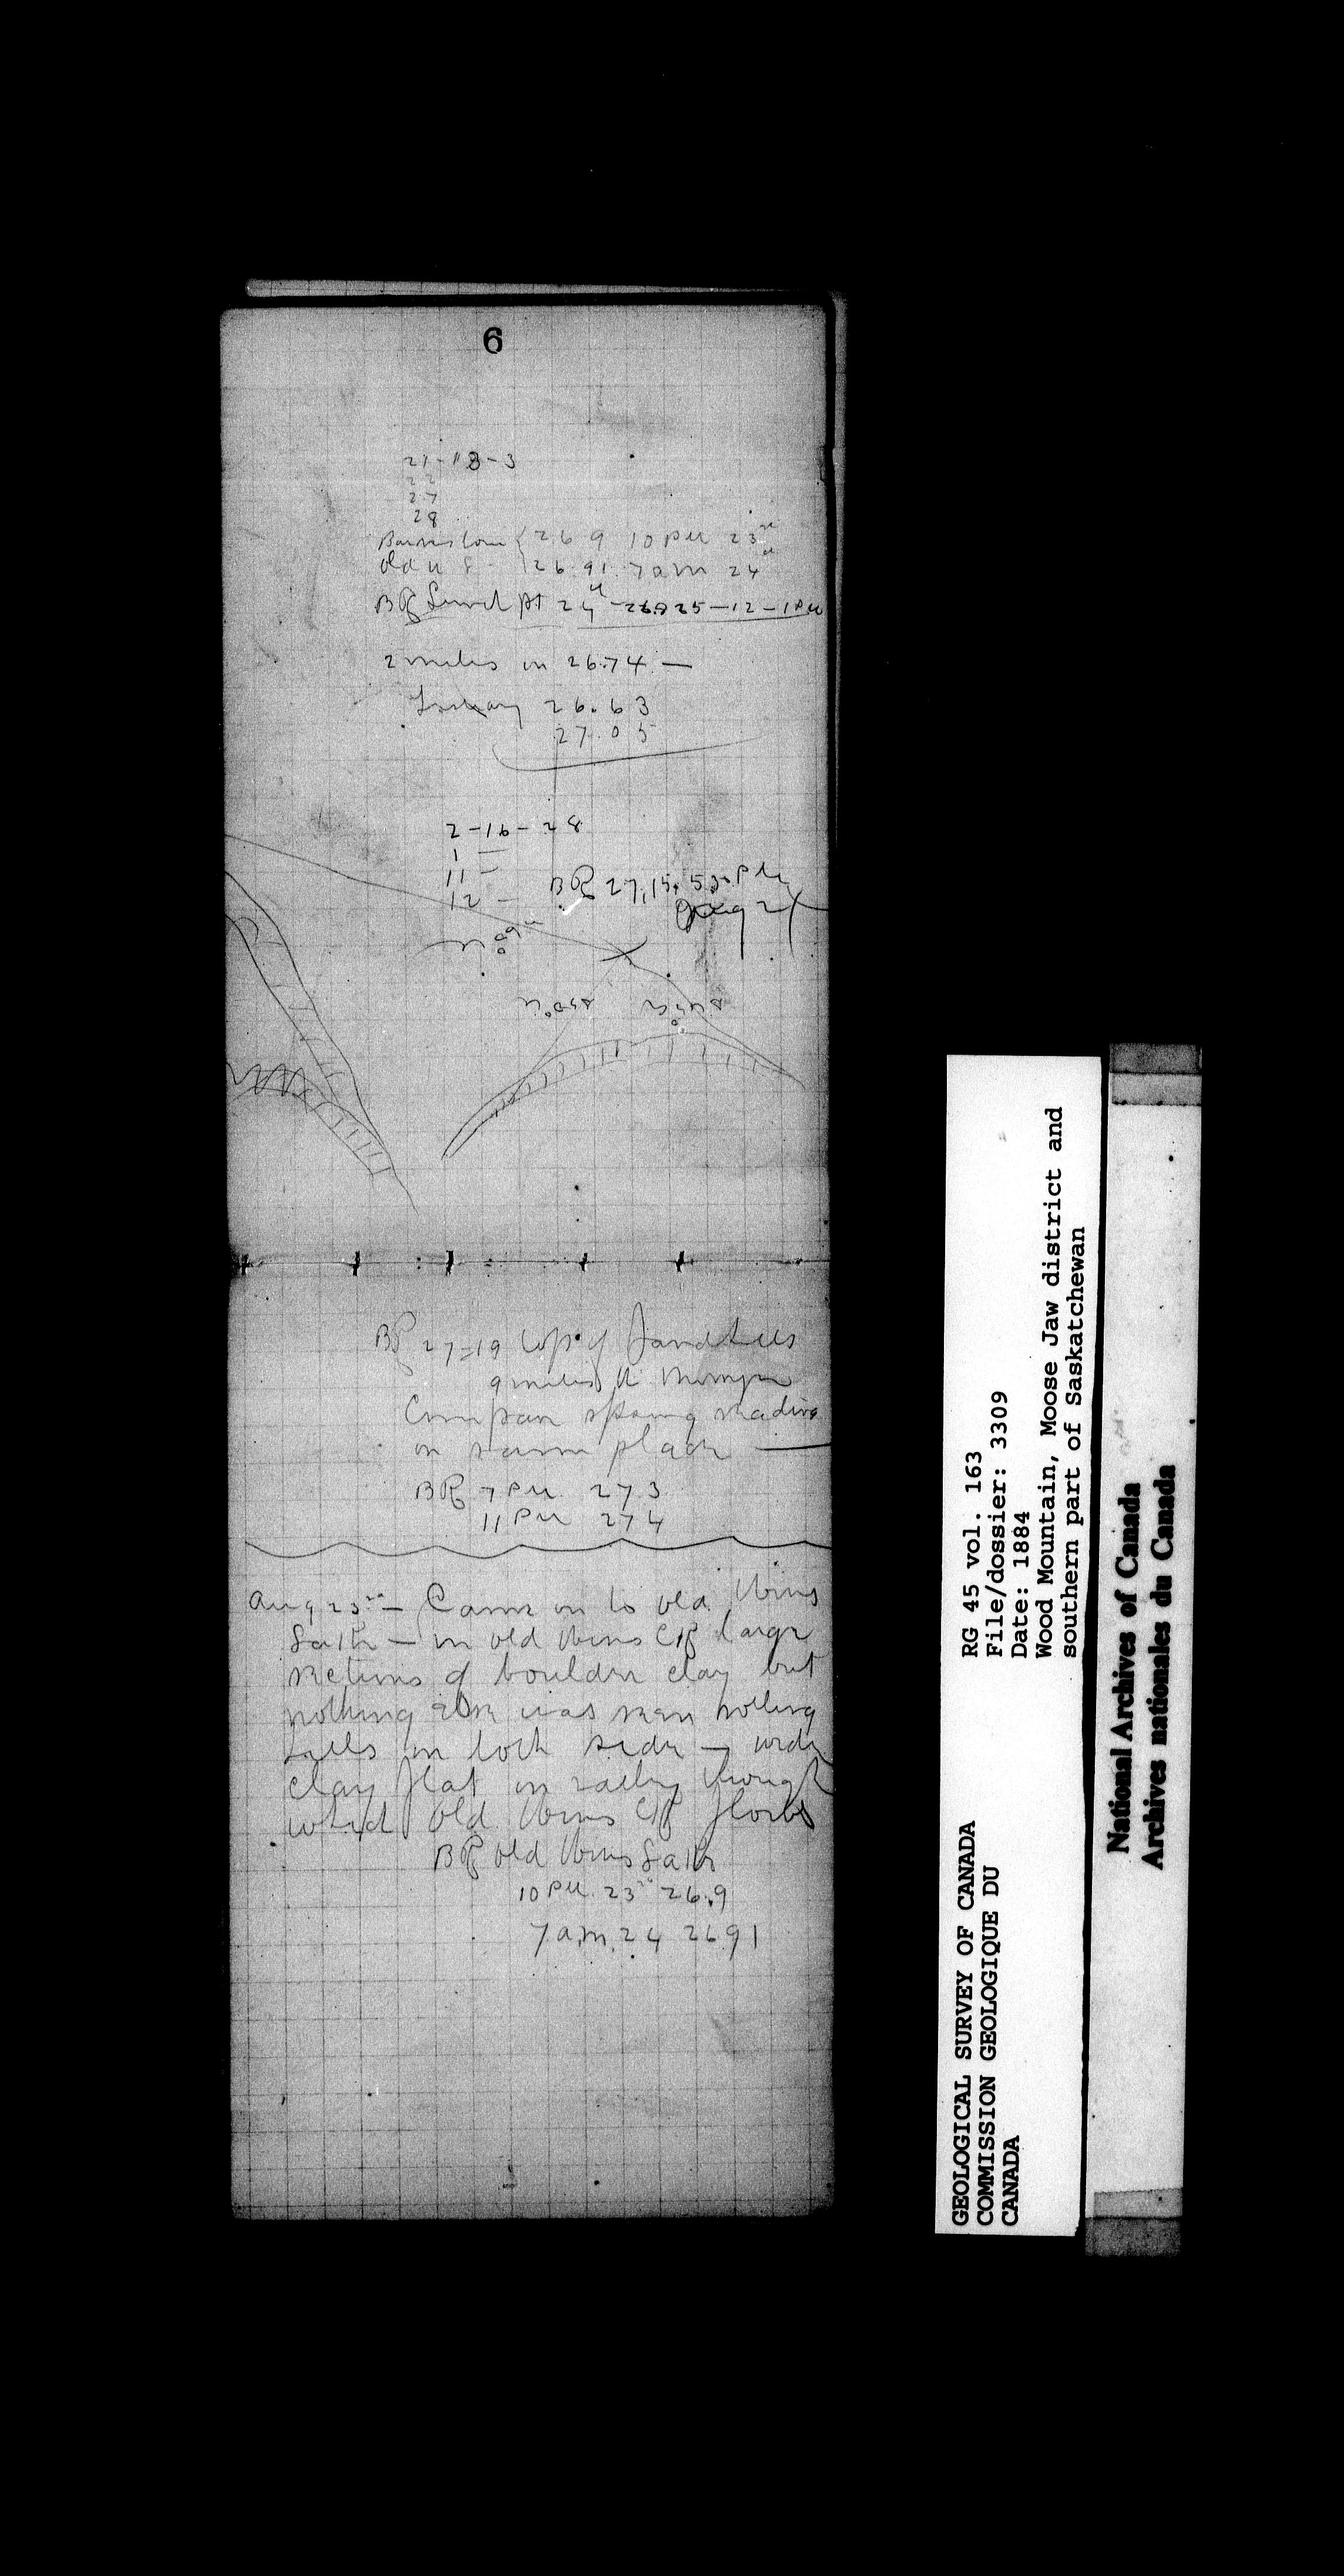 6
21-18-3
22
27
28
26 9 10 PM 23rd
26.91. 7am 24
pt 24 26.825-12-1PM
2 miles on 26.74 —
26.63
27.05
2-16-28
1 —
11 —
12 — BR 27,15. PM
BR 27=19 top of Sandhills
9 miles
Compare Spring reading
on same place —
BR 7 PM. 273
11 PM 274
Aug 23rd — Came on to old Wives
Lake — on old Wives Ck large
sections of boulder clay but
nothing else was seen rolling
hills on both side — wide
clay flat in valley through
which Old Wives Ck flows
BR old Wives Lake
10 PM. 23rd 26.9
7 a.m. 24 2691
GEOLOGICAL SURVEY OF CANADA
COMMISSION GEOLOGIQUE DU
CANADA
RG 45 vol. 163
File/dossier: 3309
Date: 1884
Wood Mountain, Moose Jaw district and
southern part of Saskatchewan
National Archives of Canada
Archives nationales du Canada